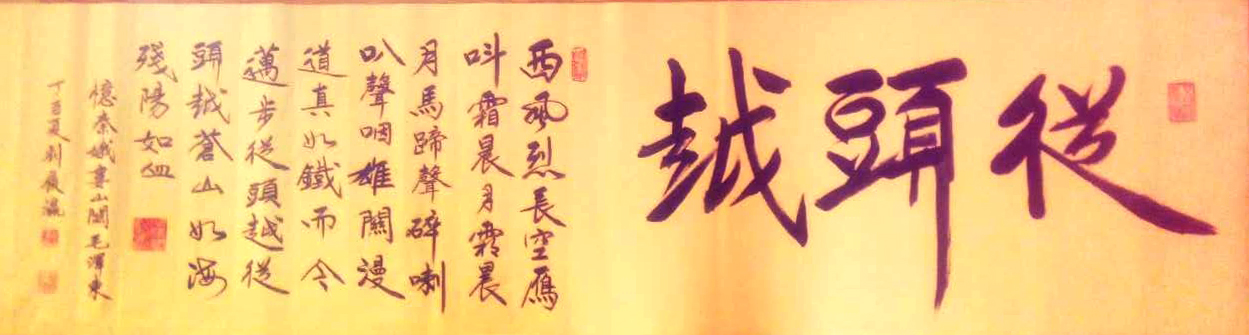 從頭越
西風烈長空鴈
叫霜晨月霜晨
月馬蹄聲碎喇
叭聲咽雄關漫
道真如鐵而今
邁步從頭越從
頭越蒼山如海
殘陽如血
憶秦娥婁山關毛澤東
丁酉夏劉